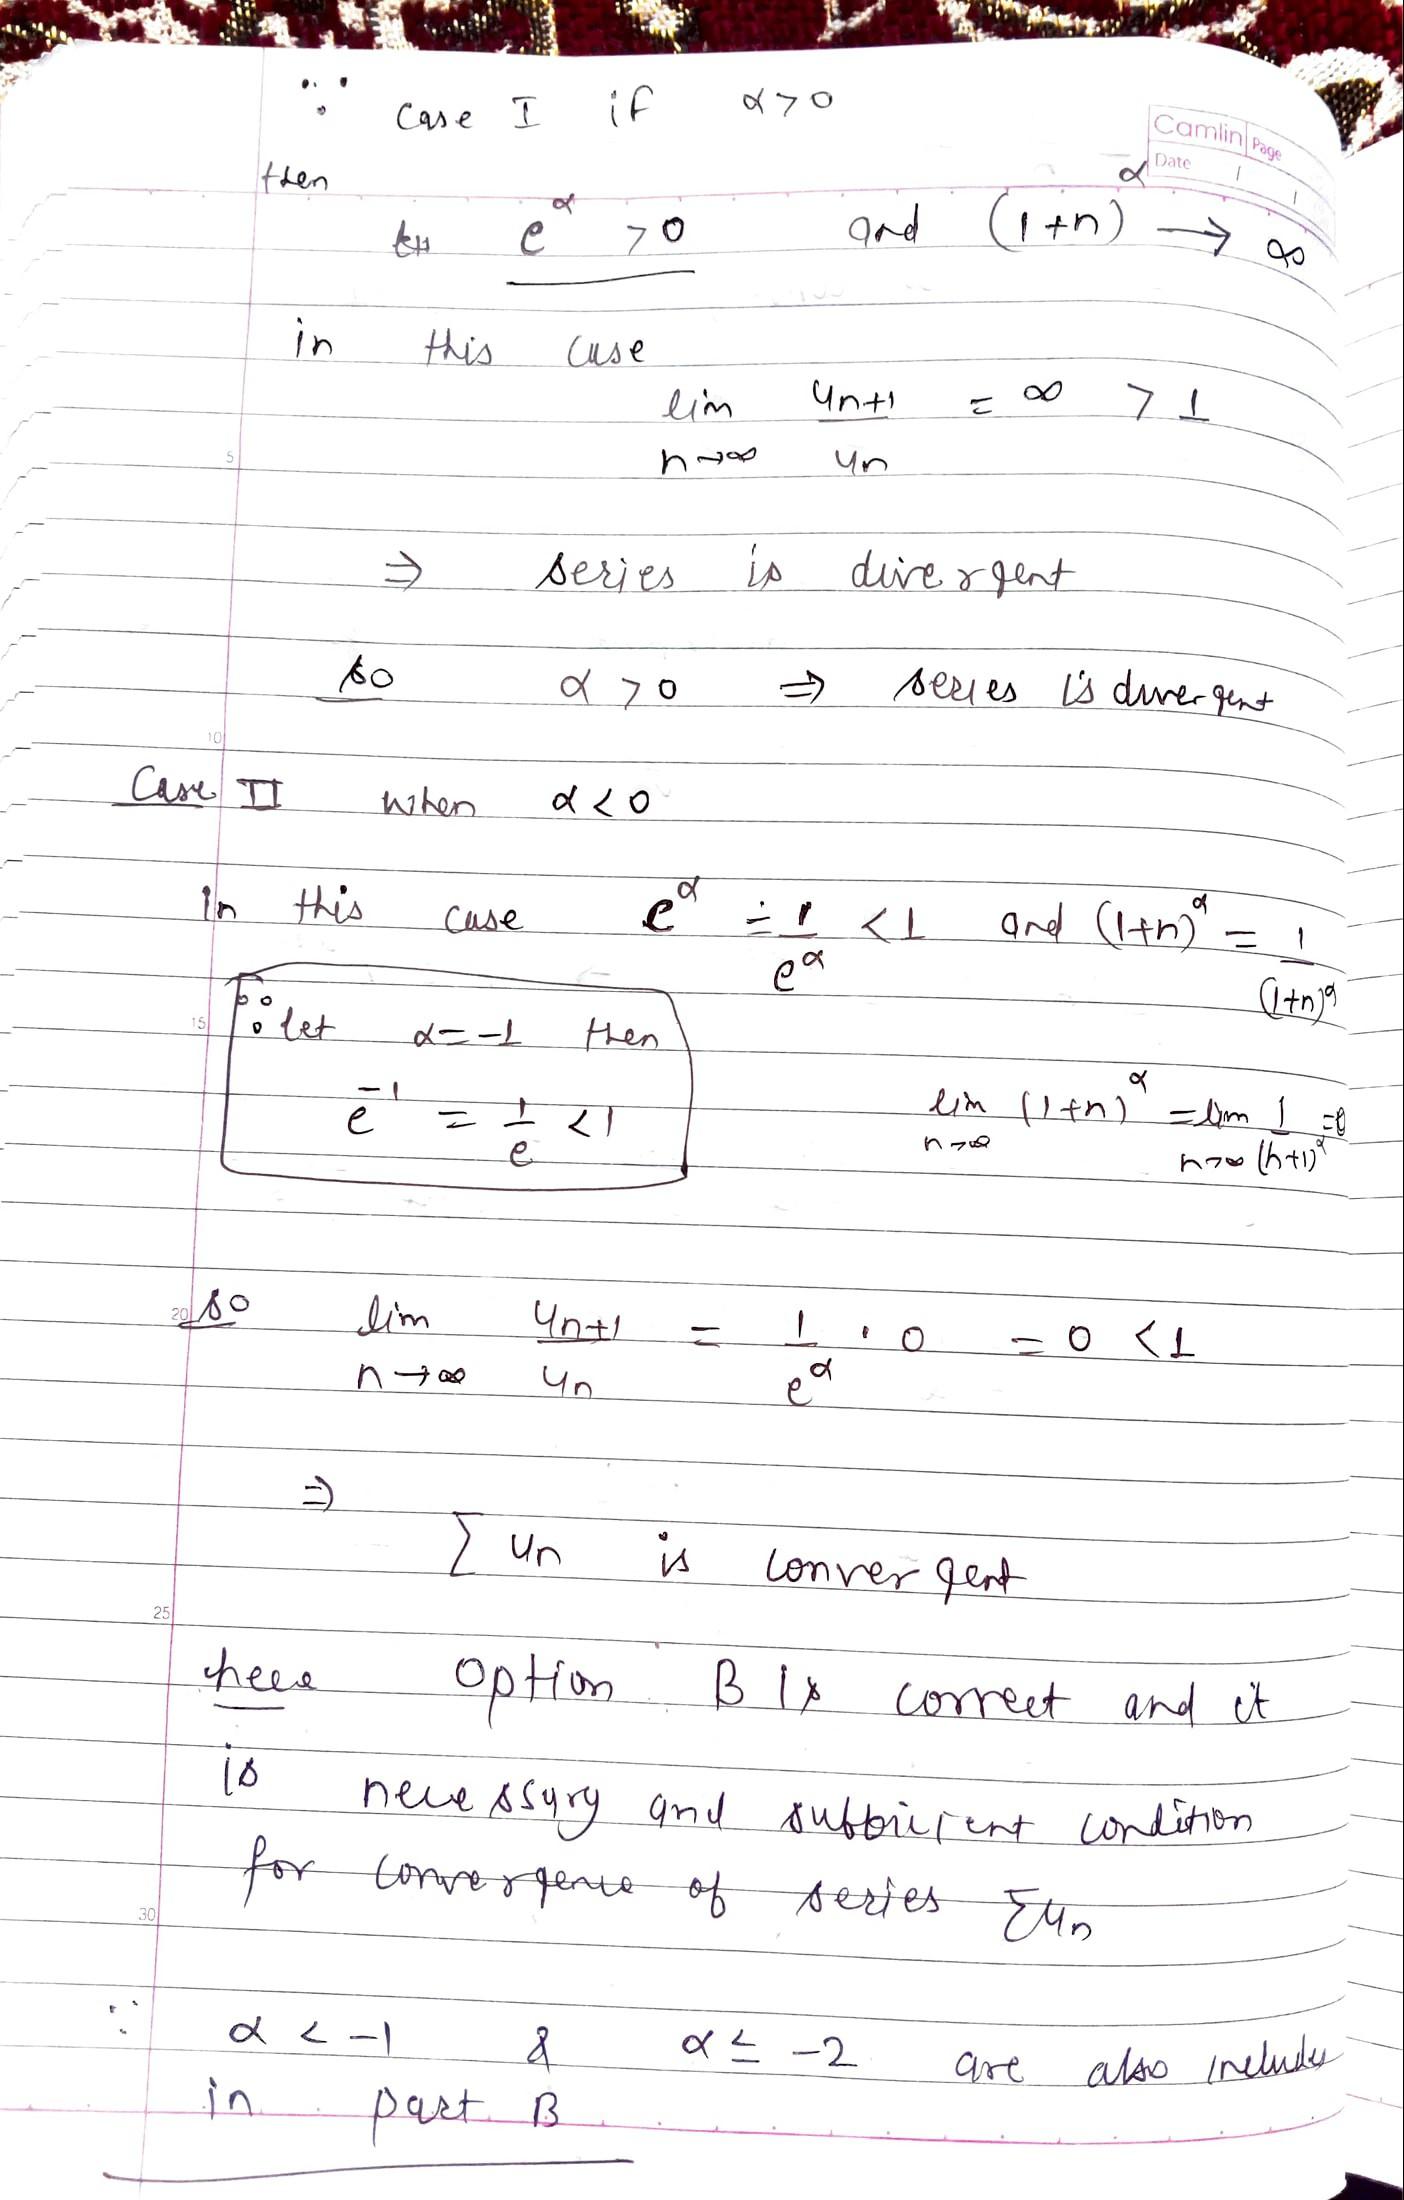 ∵ Case I if α>0
Camlin Page
Date
then
e^α >0 and (1+n)^α → ∞
in this case
lim n→∞ u_{n+1}/u_n = ∞ > 1
5
⇒ series is divergent
so α > 0 ⇒ series is divergent
10
Case II when α < 0
In this case e^α = 1/e^α < 1 and (1+n)^α = 1/(1+n)^α
15
∵ let α = -1 then
e^{-1} = 1/e < 1
lim n→∞ (1+n)^α = lim n→∞ 1/(n+1)^α = 0
20
so lim n→∞ u_{n+1}/u_n = 1/e^α · 0 = 0 < 1
⇒
∑ u_n is convergent
25
here option B is correct and it
is necessary and sufficient condition
for convergence of series ∑u_n
30
∵ α < -1 & α ≤ -2 are also includes
in part B